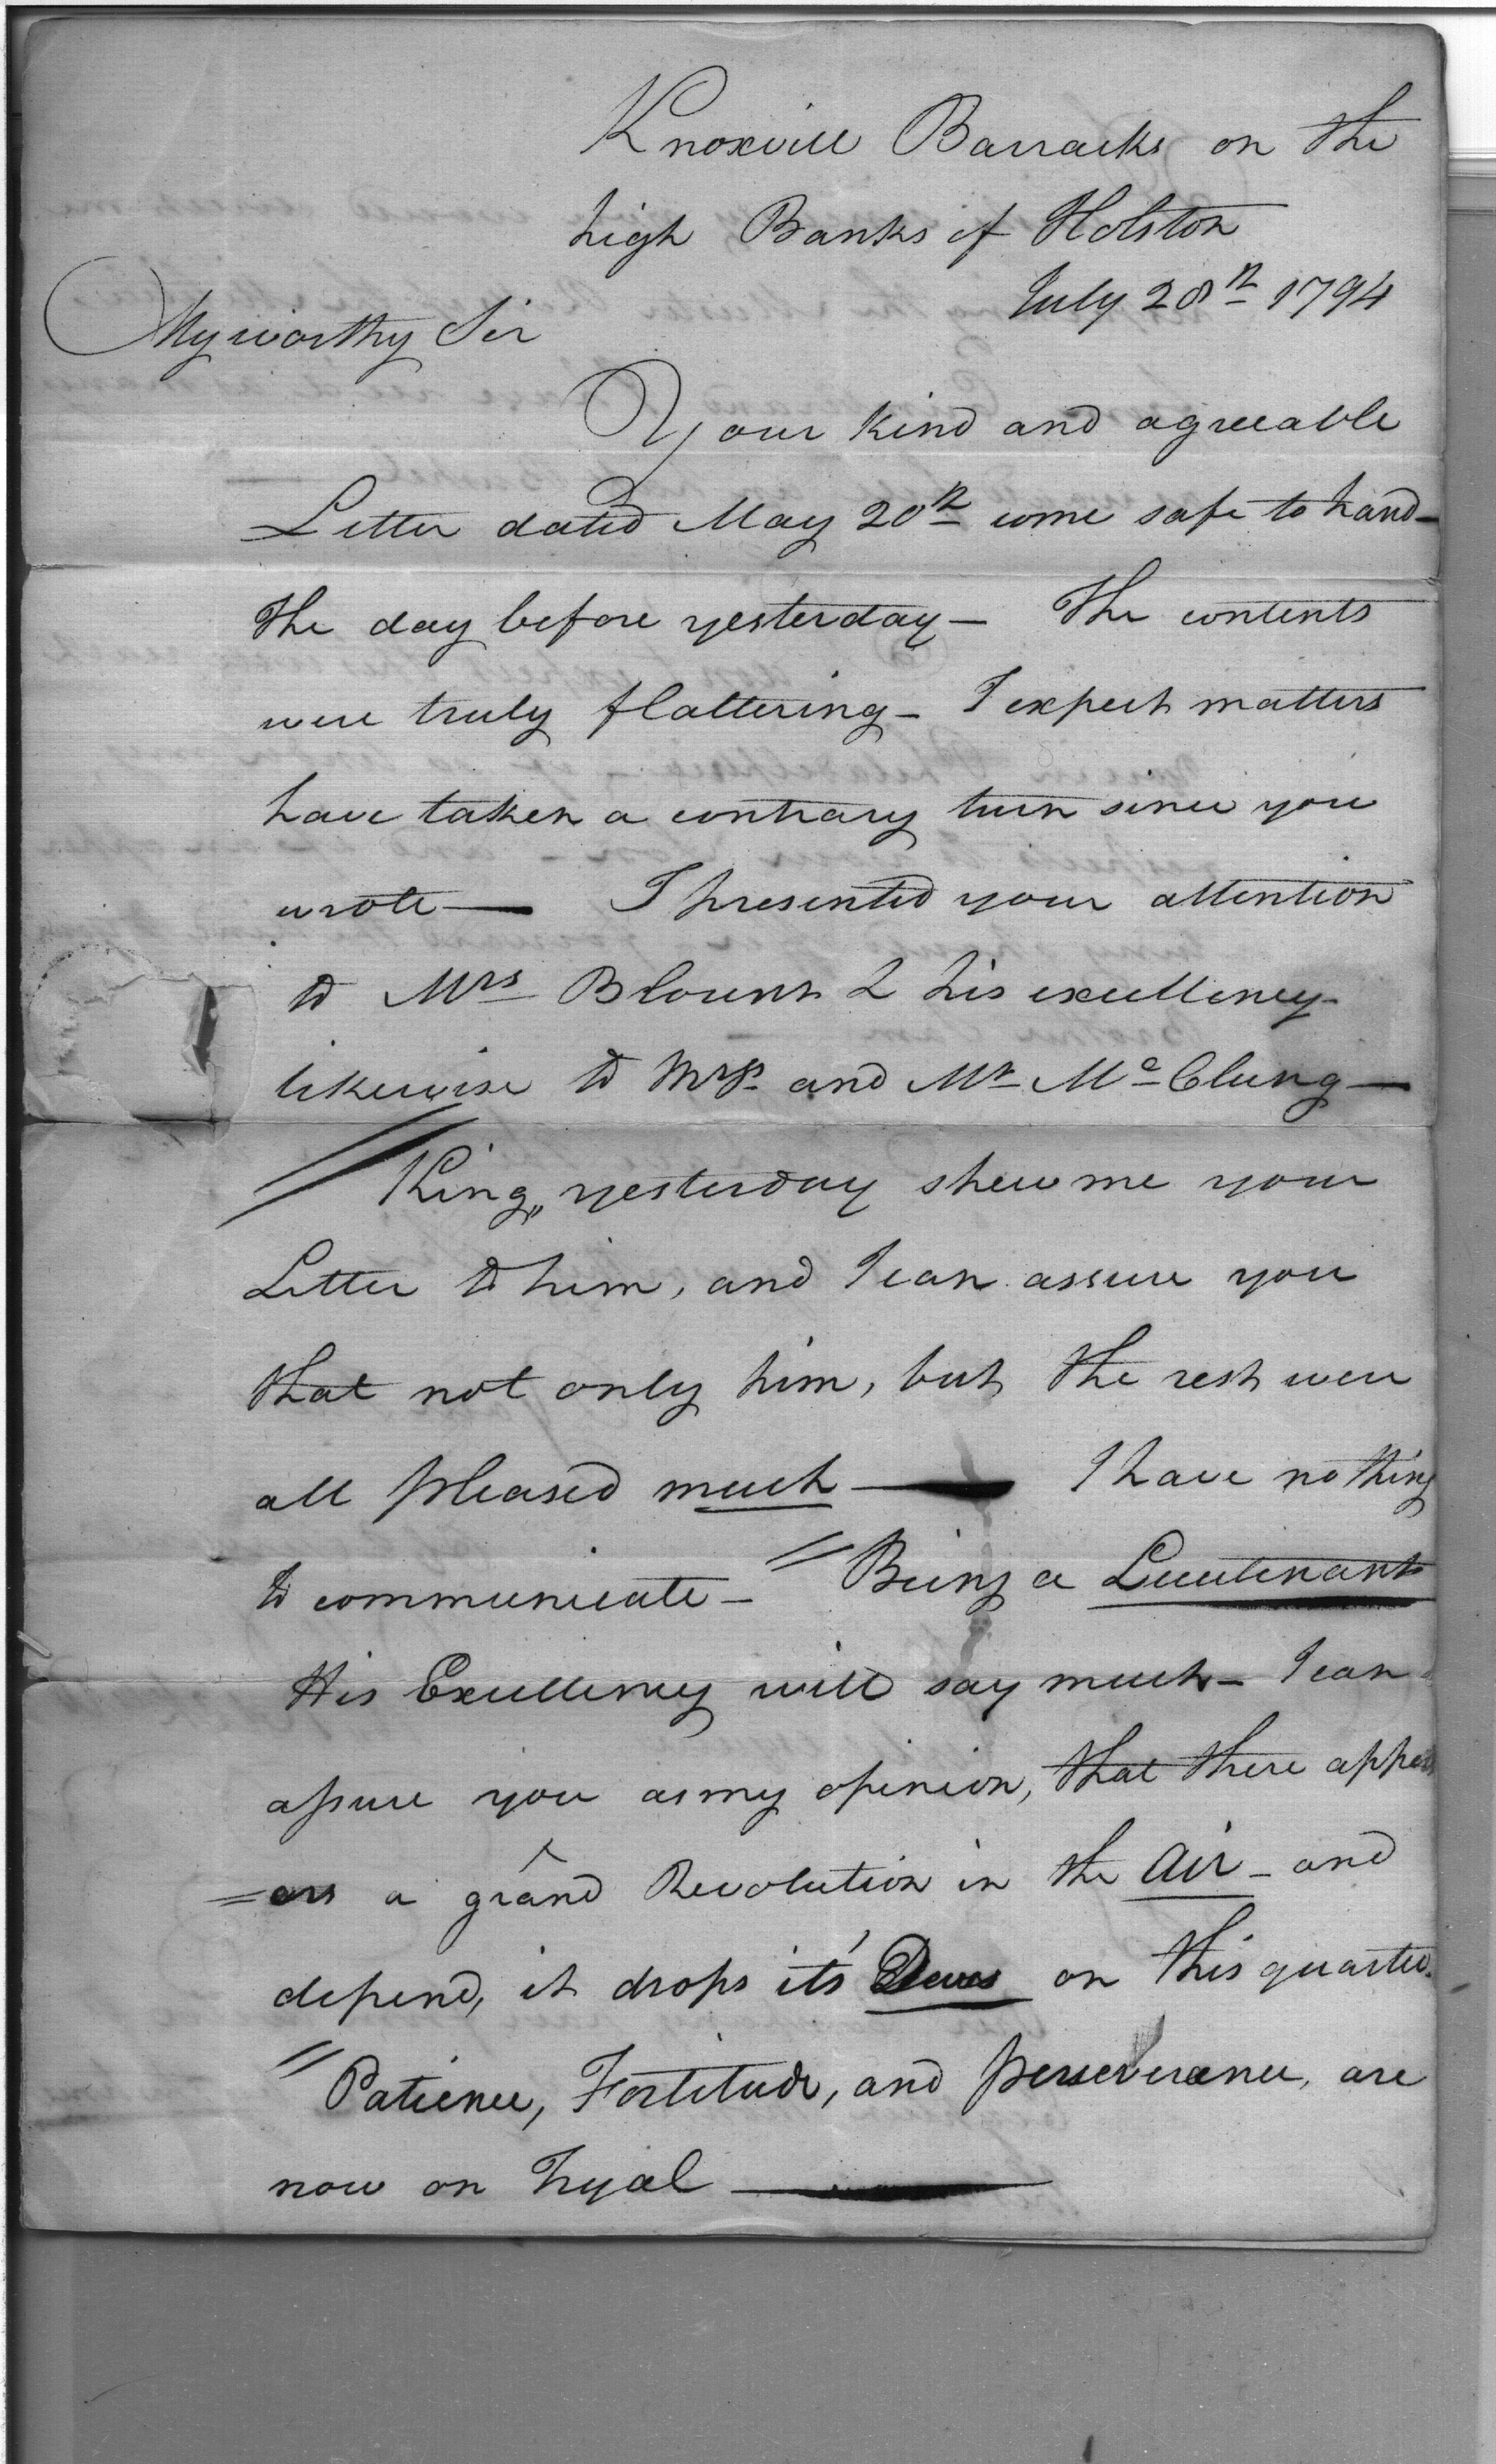 Knoxvill Barracks on the
high Banks of Holston
July 28th 1794
My worthy Sir
Your kind and agreeable
Letter dated May 20th come safe to hand—
the day before yesterday— The contents
were truly flattering— I expect matters
have taken a contrary turn since you
wrote— I presented your attention
to Mrs Blount & his excellency—
likewise to Mrs. and Mr Mc Clung—
King,, yesterday shew me your
Letter to him, and I can assure you
that not only him, but the rest were
all pleased much — I have nothing
to communicate— Being a Lieutenant
His Excellency will say much— I can
assure you as my opinion, that there appe
=ars a grand Revolution in the air— and
depend, it drops it's Dews on this quarter.
Patience, Fortitude, and perseverance, are
now on Tryal —